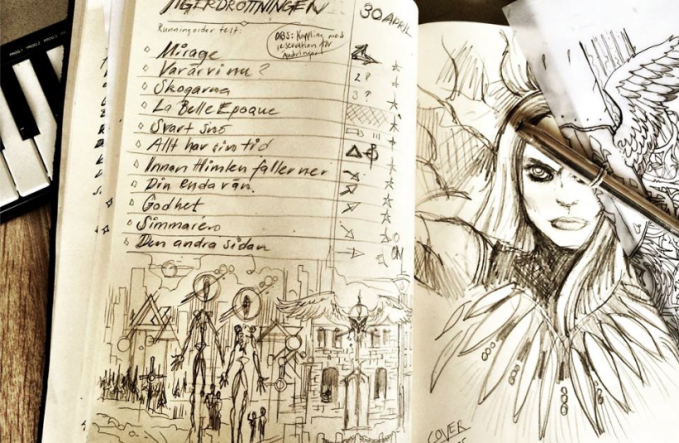 TIGERDROTTNINGEN
30 APRIL
Running order test:
OBS: Koppling med
reservation för
ändringar!
Mirage
Var är vi nu?
2?
Skogarna
3?
La Belle Epoque
Svart snö
Allt har sin tid
Innan Himlen faller ner
Din enda vän
Godhet
Simmaren
Den andra sidan
ON
COVER